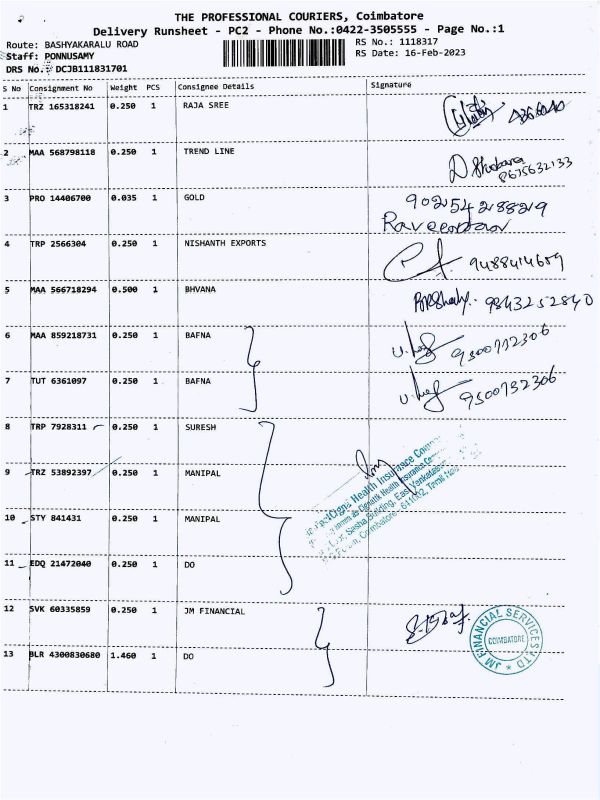 THE PROFESSIONAL COURIERS, Coimbatore
Delivery Runsheet - PC2 - Phone No.:0422-3505555 - Page No.:1
Route: BASHYAKARALU ROAD RS No.: 1118317
Staff: PONNUSAMY RS Date: 16-Feb-2023
DRS No. DCJB111831701
S No Consignment No Weight PCS Consignee Details Signature
1 TRZ 165318241 0.250 1 RAJA SREE
2 MAA 568798118 0.250 1 TREND LINE
8675632133
3 PRO 14406700 0.035 1 GOLD 9025428829
4 TRP 2566304 0.250 1 NISHANTH EXPORTS 9488414659
5 MAA 566718294 0.500 1 BHVANA 9843252840
6 MAA 859218731 0.250 1 BAFNA
7 TUT 6361097 0.250 1 BAFNA 9500732306
8 TRP 7928311 0.250 1 SURESH
9 TRZ 53892397 0.250 1 MANIPAL
10 STY 841431 0.250 1 MANIPAL
11 EDQ 21472040 0.250 1 DO
Health Insurance
Coimbatore - 641002, Tamil
12 SVK 60335859 0.250 1 JM FINANCIAL
13 BLR 4300830680 1.460 1 DO
JM FINANCIAL SERVICES LTD
COIMBATORE